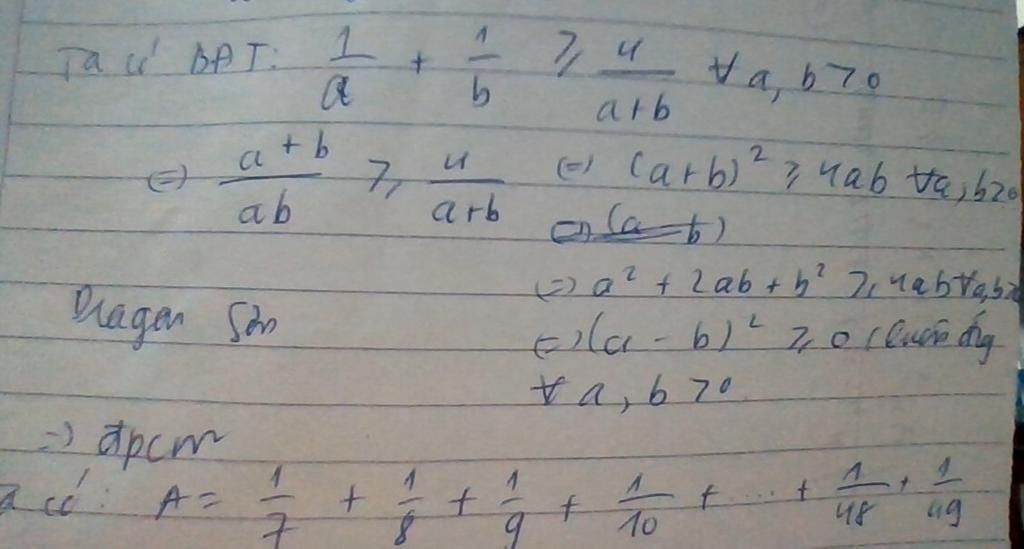 Ta có BĐT: 1/a + 1/b ≥ 4/(a+b) ∀ a, b > 0
⇔ (a+b)/(ab) ≥ 4/(a+b) ⇔ (a+b)² ≥ 4ab ∀a, b>0
⇔ (a-b)
⇔ a² + 2ab + b² ≥ 4ab ∀a,b>
Dragon
⇔ (a - b)² ≥ 0 (luôn đúng
∀ a, b > 0
⇒ đpcm
a có: A = 1/7 + 1/8 + 1/9 + 1/10 + ... + 1/48 + 1/49